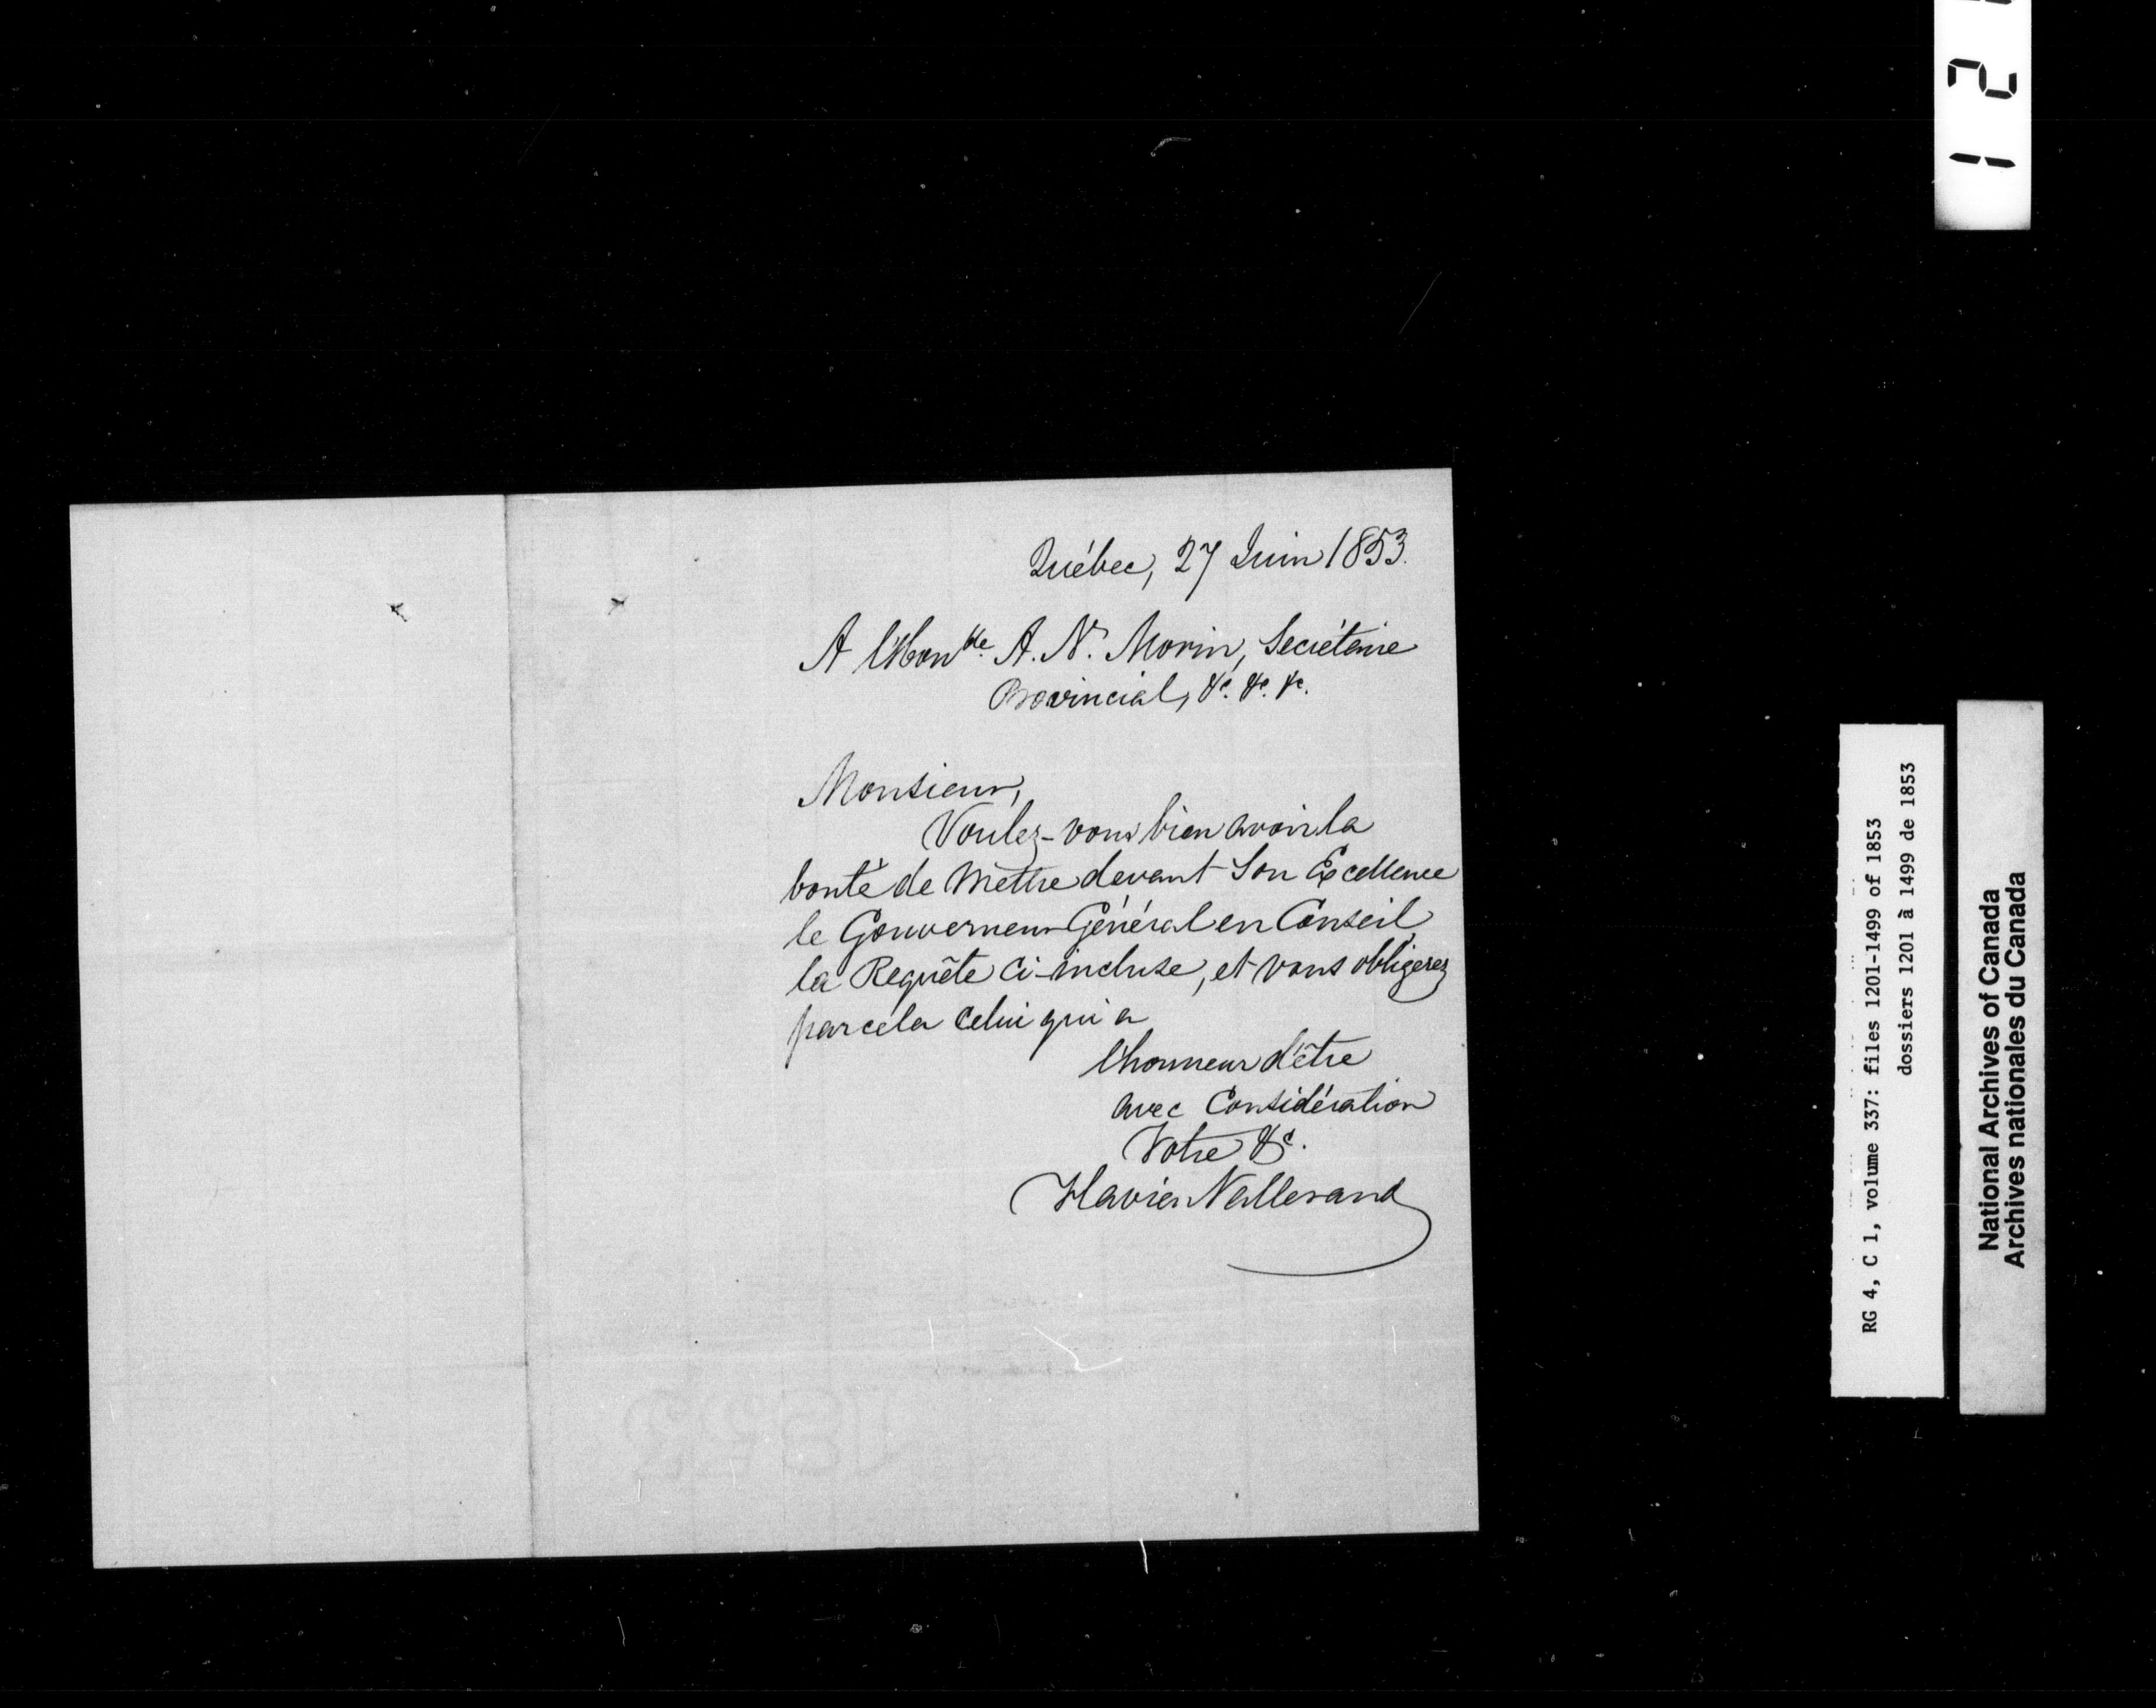 Québec, 27 Juin 1853.
A l'Honble. A. N. Morin, Secrétaire
Provincial, &c. &c. &c.
Monsieur,
Voulez-vous bien avoir la
bonté de mettre devant Son Excellence
le Gouverneur Général en Conseil,
la Requête ci-incluse, et vous obligerez
par cela celui qui a
l'honneur d'être
avec Considération
Votre &c.
Flavien Vallerand
RG 4, C 1, volume 337: files 1201-1499 of 1853
dossiers 1201 à 1499 de 1853
National Archives of Canada
Archives nationales du Canada